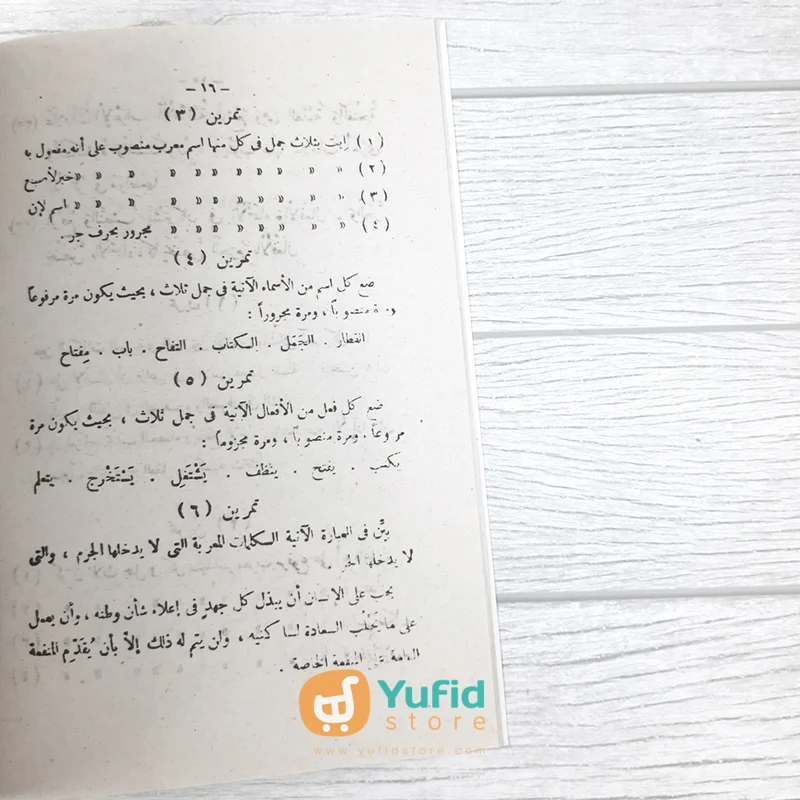 – ١٦ –
تمرين (٣)
(١) إيت بثلاث جمل فى كل منها اسم معرب منصوب على أنه مفعول به
(٢) » » » » » » » » » » خبر لأصبح
(٣) » » » » » » » » » » اسم لإن
(٤) » » » » » » » » » مجرور بحرف جر .
تمرين (٤)
ضع كل اسم من الأسماء الآتية فى جمل ثلاث ، بحيث يكون مرة مرفوعاً
ومرة منصوباً ، ومرة مجروراً :
القطار . الجَمَل . الكتاب . التفاح . باب . مِفتاح
تمرين (٥)
ضع كل فعل من الأفعال الآتية فى جمل ثلاث ، بحيث يكون مرة
مرفوعاً ، ومرة منصوباً ، ومرة مجزوماً :
يكتب . يفتح . ينظف . يَشْتَغِل . يَسْتَخْرج . يتعلم
تمرين (٦)
بيِّن فى العبارة الآتية الكلمات المعربة التى لا يدخلها الجزم ، والتى
لا يدخلها الجر .
يجب على الإنسان أن يبذل كل جهده فى إعلاء شأن وطنه ، وأن يعمل
على ما يَجْلب السعادة لساكنيه ، ولن يتم له ذلك إلاَّ بأن يُقَدِّم المنفعة
العامة على المنفعة الخاصة .
Yufid
store
www.yufidstore.com